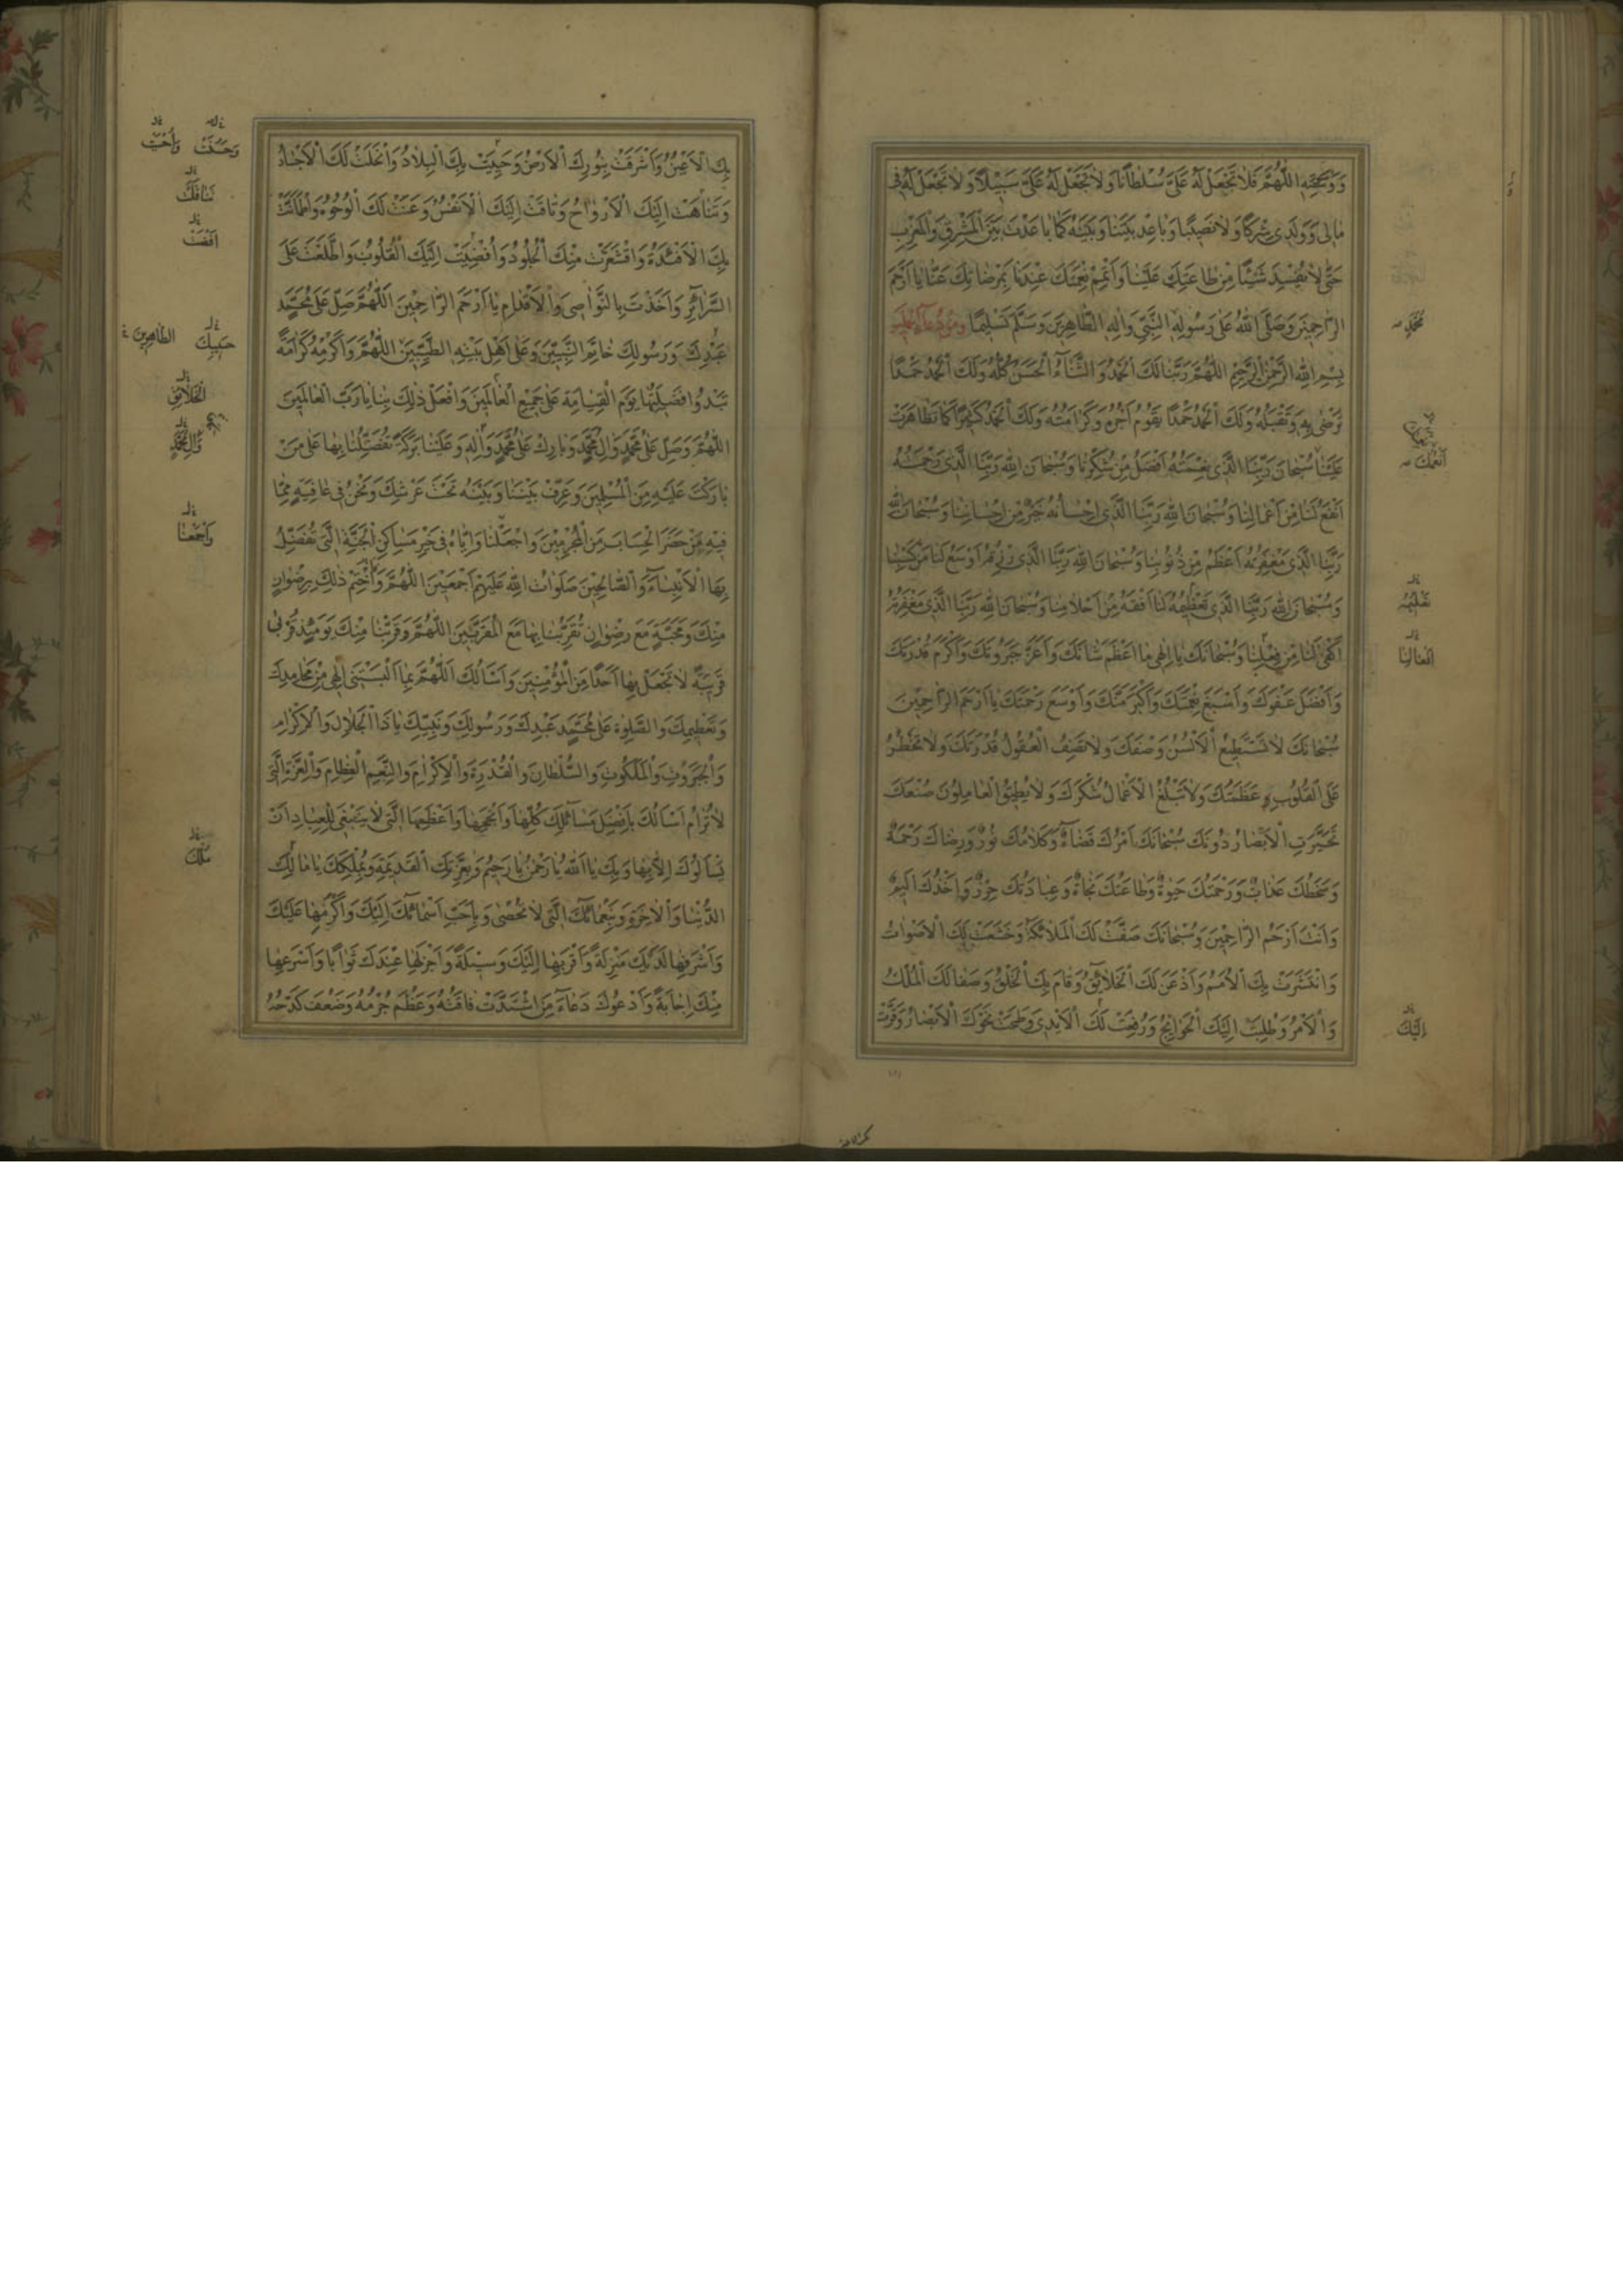 وَوَسْوَسَتِهِ اللّٰهُمَّ فَلَا تَجْعَلْ لَهُ عَلَيَّ سُلْطَانًا وَلَا تَجْعَلْ لَهُ عَلَيَّ سَبِيلًا وَلَا تَجْعَلْ لَهُ فِي
مَالِي وَوَلَدِي شِرْكًا وَلَا نَصِيبًا وَبَاعِدْ بَيْنَنَا وَبَيْنَهُ كَمَا بَاعَدْتَ بَيْنَ الْمَشْرِقِ وَالْمَغْرِبِ
حَتّٰى لَا يُفْسِدَ شَيْئًا مِنْ طَاعَتِكَ عَلَيْنَا وَأَتْمِمْ نِعْمَتَكَ عِنْدَنَا بِمَرْضَاتِكَ عَنَّا يَا أَرْحَمَ
الرَّاحِمِينَ وَصَلَّى اللّٰهُ عَلَى رَسُولِهِ النَّبِيِّ وَآلِهِ الطَّاهِرِينَ وَسَلَّمَ تَسْلِيمًا وَمِنْ دُعَائِهِ
مُحَمَّدٍ
بِسْمِ اللّٰهِ الرَّحْمٰنِ الرَّحِيمِ اللّٰهُمَّ رَبَّنَا لَكَ الْحَمْدُ وَالثَّنَاءُ الْحَسَنُ كُلُّهُ وَلَكَ الْحَمْدُ حَمْدًا
تَرْضٰى بِهِ وَتَقْبَلُهُ وَلَكَ الْحَمْدُ حَمْدًا يَقُومُ أَجْرُهُ وَكَرَامَتُهُ وَلَكَ الْحَمْدُ كَثِيرًا كَمَا تَظَاهَرَتْ
أَنْعُمُكَ
عَلَيْنَا سُبْحَانَ رَبِّنَا الَّذِي نِعْمَتُهُ أَفْضَلُ مِنْ شُكْرِنَا وَسُبْحَانَ اللّٰهِ رَبِّنَا الَّذِي رَحْمَتُهُ
أَنْفَعُ لَنَا مِنْ أَعْمَالِنَا وَسُبْحَانَ اللّٰهِ رَبِّنَا الَّذِي إِحْسَانُهُ خَيْرٌ مِنْ إِحْسَانِنَا وَسُبْحَانَ اللّٰهِ
رَبِّنَا الَّذِي مَغْفِرَتُهُ أَعْظَمُ مِنْ ذُنُوبِنَا وَسُبْحَانَ اللّٰهِ رَبِّنَا الَّذِي رِزْقُهُ أَوْسَعُ لَنَا مِنْ كَسْبِنَا
وَسُبْحَانَ اللّٰهِ رَبِّنَا الَّذِي تَعْظِيمُهُ لَنَا أَفْقَهُ مِنْ أَحْلَامِنَا وَسُبْحَانَ اللّٰهِ رَبِّنَا الَّذِي مَغْفِرَتُهُ
أَكْفٰى لَنَا مِنْ فِعْلِنَا وَسُبْحَانَكَ يَا إِلٰهِي مَا أَعْظَمَ شَأْنَكَ وَأَعَزَّ جَبَرُوتَكَ وَأَكْرَمَ قُدْرَتَكَ
أَفْعَالِنَا
وَأَفْضَلَ عَفْوَكَ وَأَسْبَغَ نِعْمَتَكَ وَأَكْبَرَ مَنَّكَ وَأَوْسَعَ رَحْمَتَكَ يَا أَرْحَمَ الرَّاحِمِينَ
سُبْحَانَكَ لَا تَسْتَطِيعُ الْأَلْسُنُ وَصْفَكَ وَلَا تَصِفُ الْعُقُولُ قُدْرَتَكَ وَلَا تَخْطُرُ
عَلَى الْقُلُوبِ عَظَمَتُكَ وَلَا تَبْلُغُ الْأَعْمَالُ شُكْرَكَ وَلَا يُطِيقُ الْعَامِلُونَ صُنْعَكَ
تَحَيَّرَتِ الْأَبْصَارُ دُونَكَ سُبْحَانَكَ أَمْرُكَ قَضَاءٌ وَكَلَامُكَ نُورٌ وَرِضَاكَ رَحْمَةٌ
وَسَخَطُكَ عَذَابٌ وَرَحْمَتُكَ حَيٰوةٌ وَطَاعَتُكَ نَجَاةٌ وَعِبَادَتُكَ حِرْزٌ وَأَخْذُكَ أَلِيمٌ
وَأَنْتَ أَرْحَمُ الرَّاحِمِينَ وَسُبْحَانَكَ صَفَّتْ لَكَ الْمَلَائِكَةُ وَخَشَعَتْ لَكَ الْأَصْوَاتُ
وَانْتَشَرَتْ بِكَ الْأُمَمُ وَأَذْعَنَ لَكَ الْخَلَائِقُ وَقَامَ بِكَ الْخَلْقُ وَصَفَا لَكَ الْمُلْكُ
وَالْأَمْرُ وَطُلِبَتْ إِلَيْكَ الْحَوَائِجُ وَرُفِعَتْ لَكَ الْأَيْدِي وَطَمَحَتْ نَحْوَكَ الْأَبْصَارُ وَقَرَّتْ
إِلَيْكَ
بِكَ الْأَعْيُنُ وَأَشْرَقَتْ بِنُورِكَ الْأَرْضُ وَحَيِيَتْ بِكَ الْبِلَادُ وَانْحَلَتْ لَكَ الْأَجْسَادُ
وَتَنَاهَتْ إِلَيْكَ الْأَرْوَاحُ وَتَاقَتْ إِلَيْكَ الْأَنْفُسُ وَعَنَتْ لَكَ الْوُجُوهُ وَاطْمَأَنَّتْ
بِكَ الْأَفْئِدَةُ وَاقْشَعَرَّتْ مِنْكَ الْجُلُودُ وَأُفْضِيَتْ إِلَيْكَ الْقُلُوبُ وَاطَّلَعْتَ عَلَى
أَفْضَتْ
السَّرَائِرِ وَأَخَذْتَ بِالنَّوَاصِي وَالْأَقْدَامِ يَا أَرْحَمَ الرَّاحِمِينَ اللّٰهُمَّ صَلِّ عَلَى مُحَمَّدٍ
عَبْدِكَ وَرَسُولِكَ خَاتَمِ النَّبِيِّينَ وَعَلَى أَهْلِ بَيْتِهِ الطَّيِّبِينَ اللّٰهُمَّ وَأَكْرِمْهُ كَرَامَةً
حَبِيبِكَ الطَّاهِرِينَ
تَبْدُو فَضِيلَتُهَا يَوْمَ الْقِيَامَةِ عَلَى جَمِيعِ الْعَالَمِينَ وَافْعَلْ ذٰلِكَ بِنَا يَا رَبَّ الْعَالَمِينَ
الْخَلَائِقِ
اللّٰهُمَّ وَصَلِّ عَلَى مُحَمَّدٍ وَآلِ مُحَمَّدٍ وَبَارِكْ عَلَى مُحَمَّدٍ وَآلِهِ وَعَلَيْنَا بَرَكَةً تُفَضِّلُنَا بِهَا عَلَى مَنْ
وَآلِ مُحَمَّدٍ
بَارَكْتَ عَلَيْهِ مِنَ الْمُسْلِمِينَ وَعَرِّفْ بَيْنَنَا وَبَيْنَهُ تَحْتَ عَرْشِكَ وَنَحْنُ فِي عَافِيَةٍ مِمَّا
فِيهِ مَنْ حَضَرَ الْحِسَابَ مِنَ الْمُجْرِمِينَ وَاجْعَلْنَا وَإِيَّاهُ فِي خَيْرِ مَسَاكِنِ الْجَنَّةِ الَّتِي تُفَضِّلُ
وَاجْمَعْنَا
بِهَا الْأَنْبِيَاءَ وَالصَّالِحِينَ صَلَوَاتُ اللّٰهِ عَلَيْهِمْ أَجْمَعِينَ اللّٰهُمَّ وَاخْتِمْ ذٰلِكَ بِرِضْوَانٍ
مِنْكَ وَمَحَبَّةٍ مَعَ رِضْوَانٍ تُقَرِّبُنَا بِهَا مَعَ الْمُقَرَّبِينَ اللّٰهُمَّ وَقَرِّبْنَا مِنْكَ يَوْمَئِذٍ قُرْبٰى
قَرِيبَةً لَا تَجْعَلُ بِهَا أَحَدًا مِنَ الْمُؤْمِنِينَ وَأَسْأَلُكَ اللّٰهُمَّ بِمَا أَلْبَسْتَنِي إِلٰهِي مِنْ مَحَامِدِكَ
وَتَعْظِيمِكَ وَالصَّلٰوةِ عَلَى مُحَمَّدٍ عَبْدِكَ وَرَسُولِكَ وَنَبِيِّكَ يَا ذَا الْجَلَالِ وَالْإِكْرَامِ
وَالْجَبَرُوتِ وَالْمَلَكُوتِ وَالسُّلْطَانِ وَالْقُدْرَةِ وَالْإِكْرَامِ وَالنِّعَمِ الْعِظَامِ وَالْعِزَّةِ الَّتِي
لَا تُرَامُ أَسْأَلُكَ بِأَفْضَلِ مَسَائِلِكَ كُلِّهَا وَأَنْجَحِهَا وَأَعْظَمِهَا الَّتِي لَا يَنْبَغِي لِلْعِبَادِ أَنْ
يَسْأَلُوكَ إِلَّا بِهَا وَبِكَ يَا اللّٰهُ يَا رَحْمٰنُ يَا رَحِيمُ وَبِعِزَّتِكَ الْقَدِيمَةِ وَبِمُلْكِكَ يَا مَالِكَ
مَلِكَ
الدُّنْيَا وَالْآخِرَةِ وَبِنَعْمَائِكَ الَّتِي لَا تُحْصٰى وَبِأَحَبِّ أَسْمَائِكَ إِلَيْكَ وَأَكْرَمِهَا عَلَيْكَ
وَأَشْرَفِهَا لَدَيْكَ مَنْزِلَةً وَأَقْرَبِهَا إِلَيْكَ وَسِيلَةً وَأَجْزَلِهَا عِنْدَكَ ثَوَابًا وَأَسْرَعِهَا
مِنْكَ إِجَابَةً وَأَدْعُوكَ دُعَاءَ مَنِ اشْتَدَّتْ فَاقَتُهُ وَعَظُمَ جُرْمُهُ وَضَعُفَ كَدْحُهُ